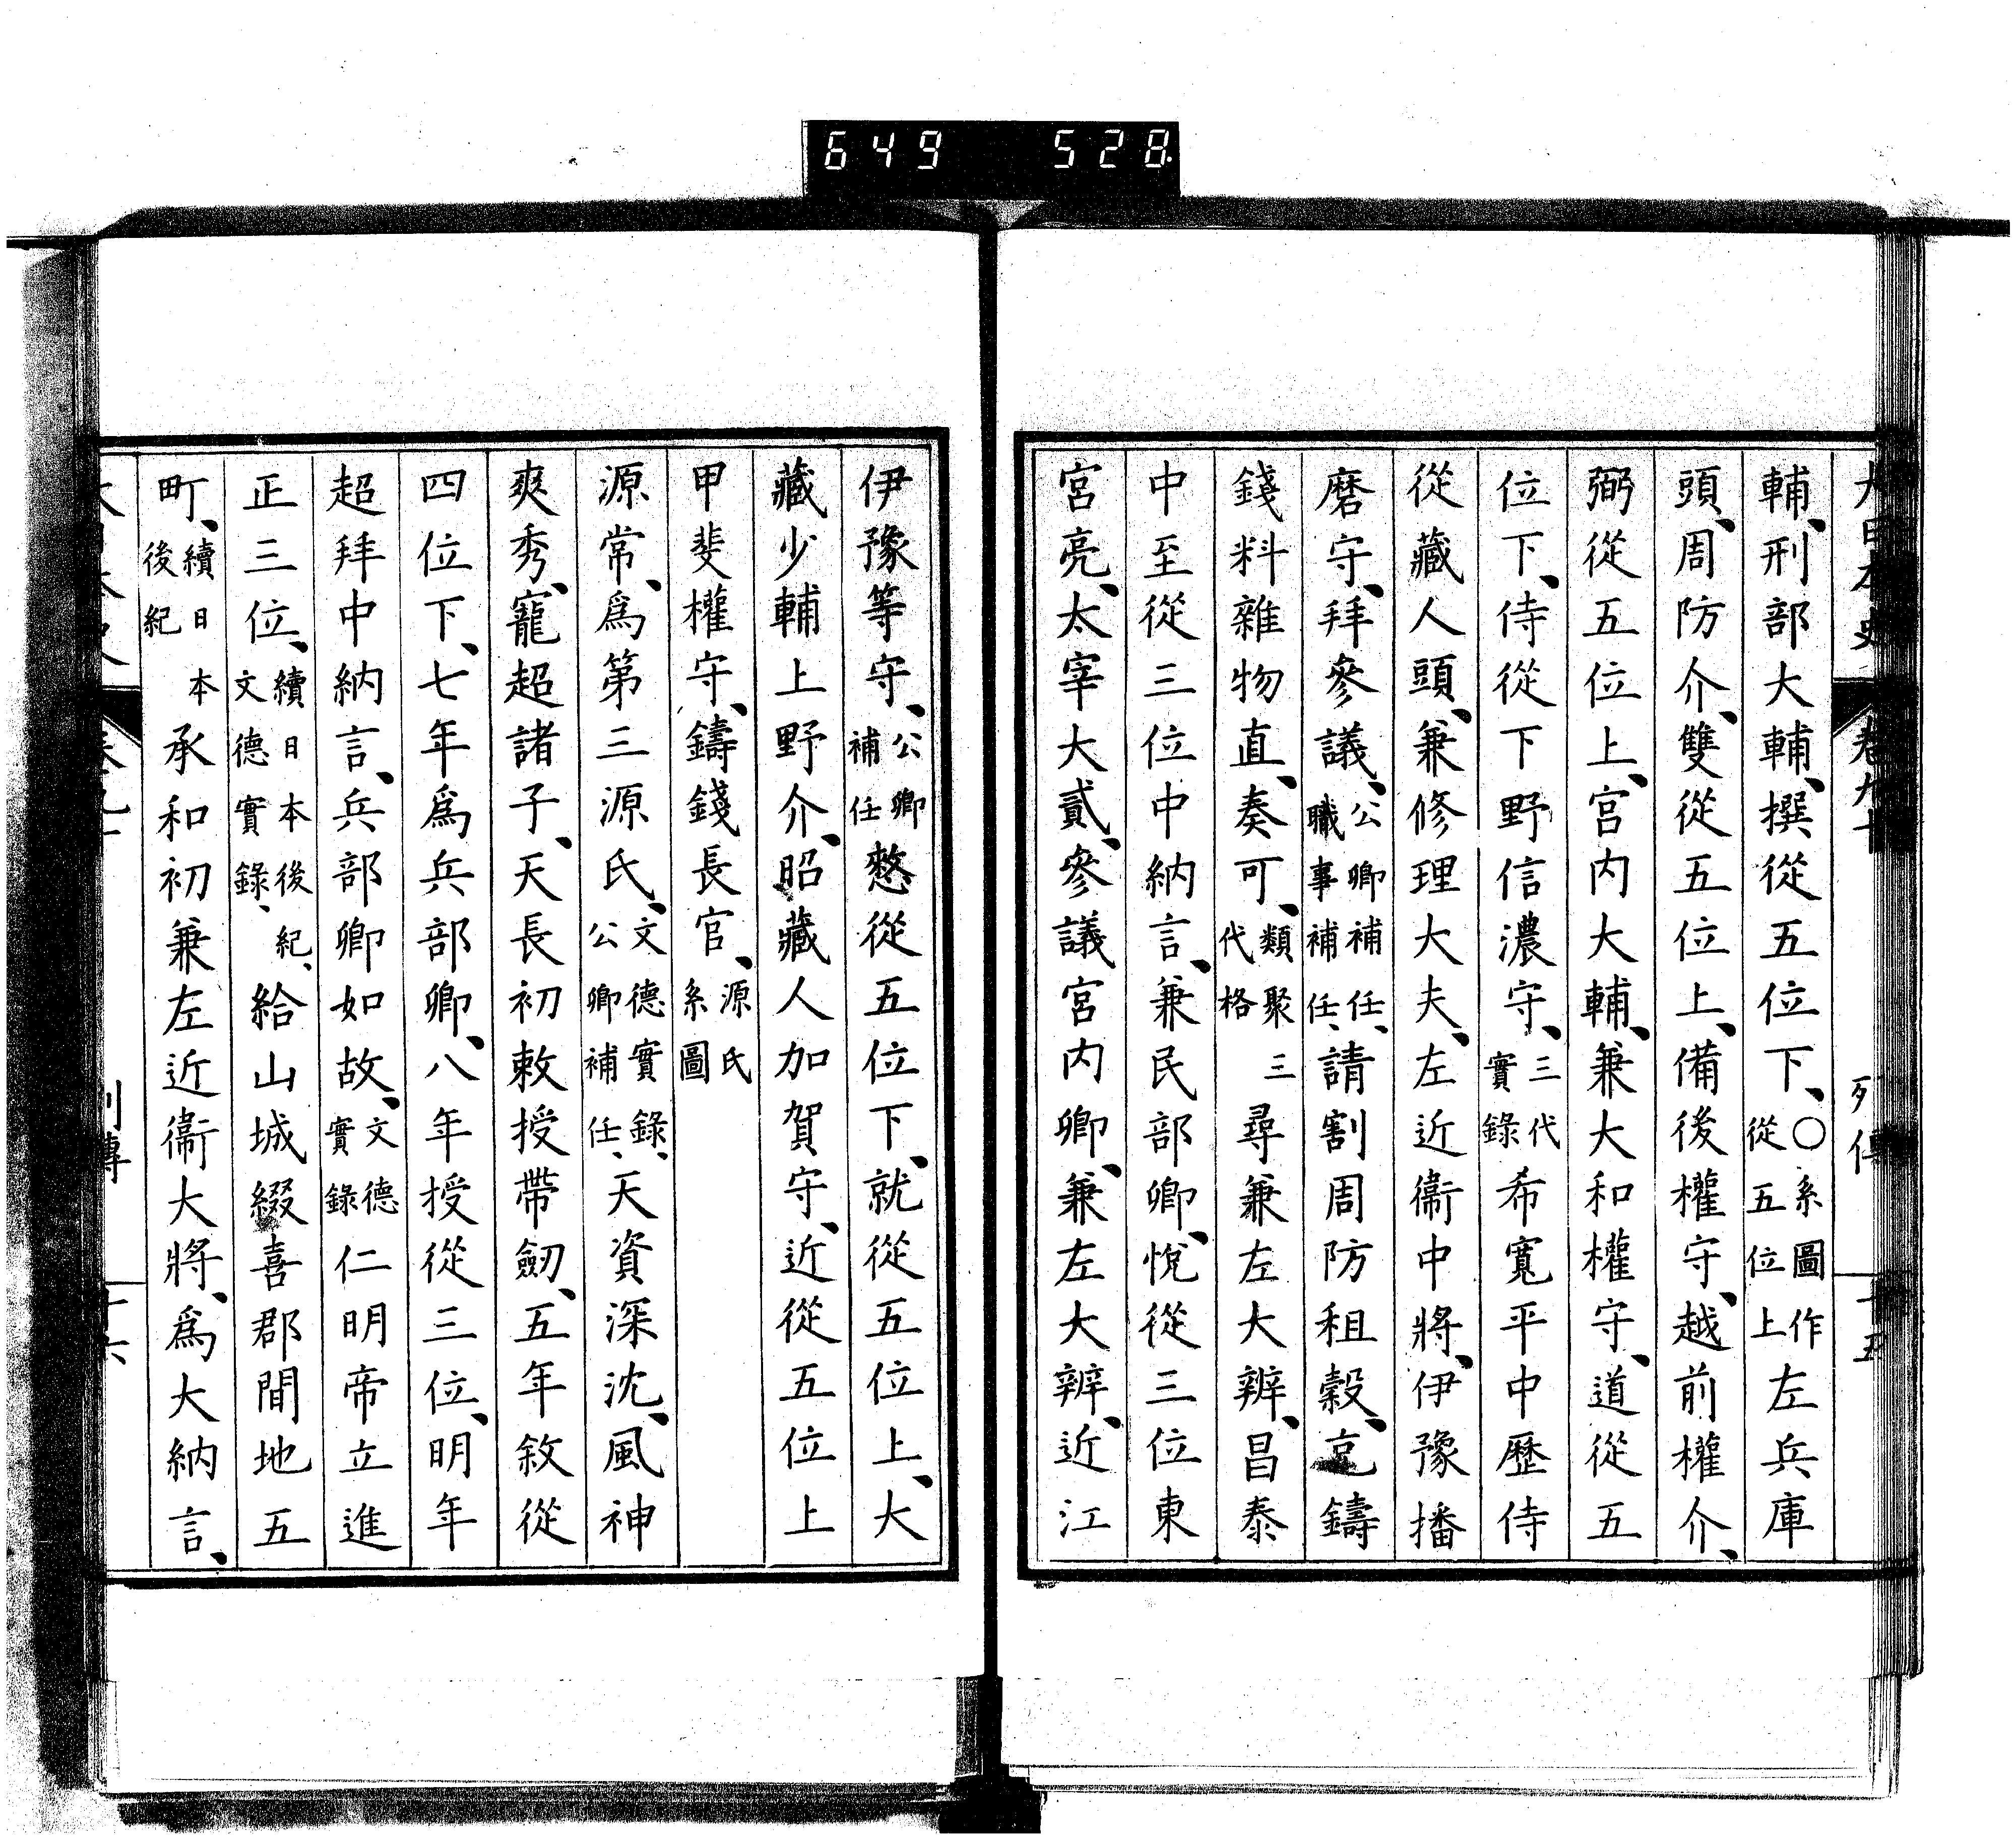 649 528
大日本史 卷九十 列傳 十五
輔、刑部大輔、撰從五位下、〇系圖作從五位上左兵庫
頭、周防介、雙從五位上、備後權守、越前權介、
弼從五位上、宮内大輔、兼大和權守、道從五
位下、侍從下野信濃守、三代實錄希寬平中歷侍
從藏人頭、兼修理大夫、左近衞中將、伊豫播
磨守、拜參議、公卿補任、職事補任、請割周防租穀、充鑄
錢料雜物直、奏可、類聚三代格尋兼左大辨、昌泰
中至從三位中納言、兼民部卿、悅從三位東
宮亮、太宰大貳、參議宮内卿、兼左大辨、近江
伊豫等守、公卿補任憗從五位下、就從五位上、大
藏少輔上野介、昭藏人加賀守、近從五位上
甲斐權守、鑄錢長官、源氏系圖
源常、爲第三源氏、文德實錄、公卿補任、天資深沈、風神
爽秀、寵超諸子、天長初敕授帶劒、五年敘從
四位下、七年爲兵部卿、八年授從三位、明年
超拜中納言、兵部卿如故、文德實錄仁明帝立進
正三位、續日本後紀、文德實錄、給山城綴喜郡間地五
町、續日本後紀承和初兼左近衞大將、爲大納言、
列傳 十六